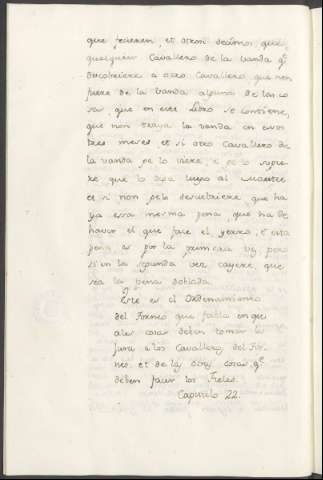 que ficieren, et otrosi decimos que
qualquier Cavallero de la vanda q̃.
descobriere a otro Cavallero, que non
fuere de la banda alguna de las co
sas, que en este Libro se contiene,
que non traya la vanda en esos
tres meses et si otro Cavallero de
la vanda se lo oiere, e se lo supie
re que lo diga luego al Maestre
et si non se lo descubriere, que ha
ya essa mesma pena, que ha de
haver el que face el yerro, e esta
pena es por la primera vez, pero
si en la segunda vez cayere que
sea la pena doblada.
Este es el Ordenamiento
del Torneo que fabla en que
ales cosas deben tomar la
jura a los Cavalleros del Tor
neo et de las otras cosas q̃.
deben facer los Fieles.
Capitulo 22.